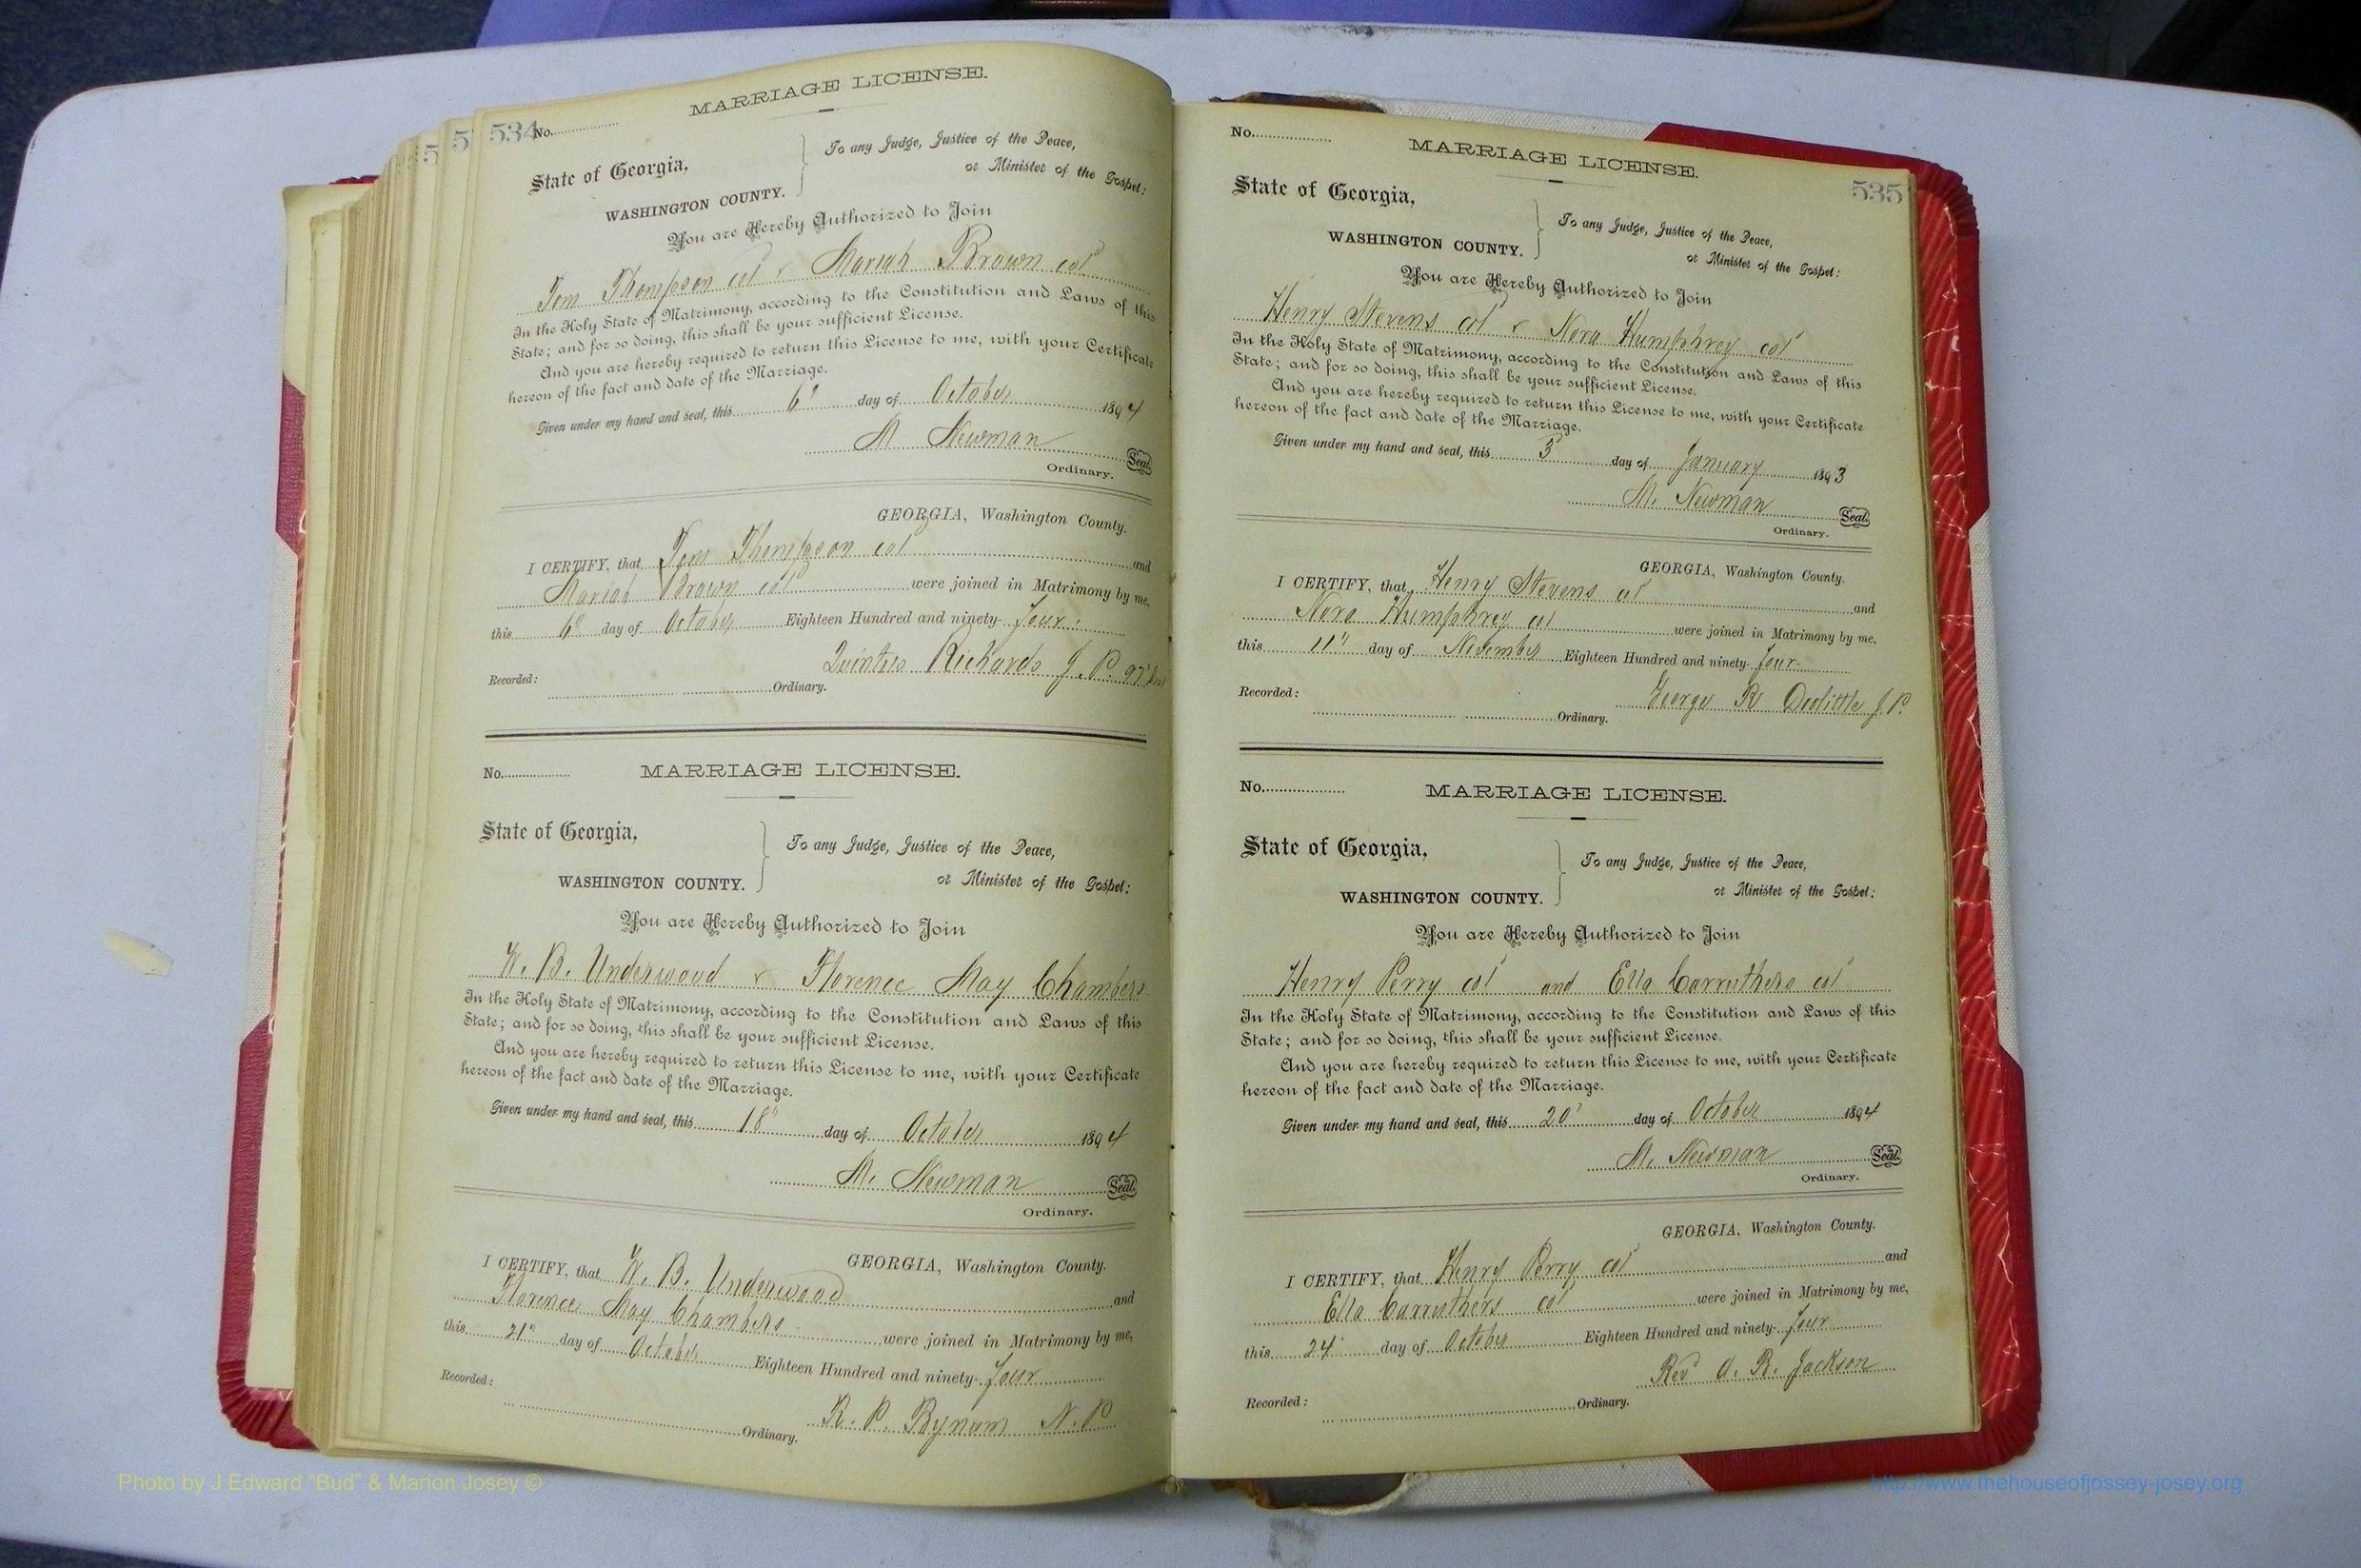 534
No.
MARRIAGE LICENSE.
State of Georgia,
WASHINGTON COUNTY.
To any Judge, Justice of the Peace,
or Minister of the Gospel:
You are Hereby Authorized to Join
Tom Thompson col & Mariah Brown col
In the Holy State of Matrimony, according to the Constitution and Laws of this
State; and for so doing, this shall be your sufficient License.
And you are hereby required to return this License to me, with your Certificate
hereon of the fact and date of the Marriage.
Given under my hand and seal, this 6" day of October 1894
M Newman Seal.
Ordinary.
GEORGIA, Washington County.
I CERTIFY, that Tom Thompson col and
Mariah Brown col were joined in Matrimony by me,
this 6" day of October Eighteen Hundred and ninety- four.
Quintus Richards J. P. 97
Recorded: Ordinary.
No.
MARRIAGE LICENSE.
State of Georgia,
WASHINGTON COUNTY.
To any Judge, Justice of the Peace,
or Minister of the Gospel:
You are Hereby Authorized to Join
W. B. Underwood & Florence May Chambers
In the Holy State of Matrimony, according to the Constitution and Laws of this
State; and for so doing, this shall be your sufficient License.
And you are hereby required to return this License to me, with your Certificate
hereon of the fact and date of the Marriage.
Given under my hand and seal, this 18" day of October 1894
M. Newman Seal.
Ordinary.
GEORGIA, Washington County.
I CERTIFY, that W. B. Underwood and
Florence May Chambers were joined in Matrimony by me,
this 21" day of October Eighteen Hundred and ninety- four
R. P. Bynum N. P.
Recorded: Ordinary.
535
No.
MARRIAGE LICENSE.
State of Georgia,
WASHINGTON COUNTY.
To any Judge, Justice of the Peace,
or Minister of the Gospel:
You are Hereby Authorized to Join
Henry Stevens col & Nora Humphrey col
In the Holy State of Matrimony, according to the Constitution and Laws of this
State; and for so doing, this shall be your sufficient License.
And you are hereby required to return this License to me, with your Certificate
hereon of the fact and date of the Marriage.
Given under my hand and seal, this 3 day of January 1893
M. Newman Seal.
Ordinary.
GEORGIA, Washington County.
I CERTIFY, that Henry Stevens col and
Nora Humphrey col were joined in Matrimony by me,
this 11" day of November Eighteen Hundred and ninety- four.
George R Doolittle J. P.
Recorded: Ordinary.
No.
MARRIAGE LICENSE.
State of Georgia,
WASHINGTON COUNTY.
To any Judge, Justice of the Peace,
or Minister of the Gospel:
You are Hereby Authorized to Join
Henry Perry col and Ella Carruthers col
In the Holy State of Matrimony, according to the Constitution and Laws of this
State; and for so doing, this shall be your sufficient License.
And you are hereby required to return this License to me, with your Certificate
hereon of the fact and date of the Marriage.
Given under my hand and seal, this 20' day of October 1894
M. Newman Seal.
Ordinary.
GEORGIA, Washington County.
I CERTIFY, that Henry Perry col and
Ella Carruthers col were joined in Matrimony by me,
this 24' day of October Eighteen Hundred and ninety- four
Rev A. R. Jackson
Recorded: Ordinary.
Photo by J Edward "Bud" & Marion Josey ©
http://www.thehouseofjossey-josey.org